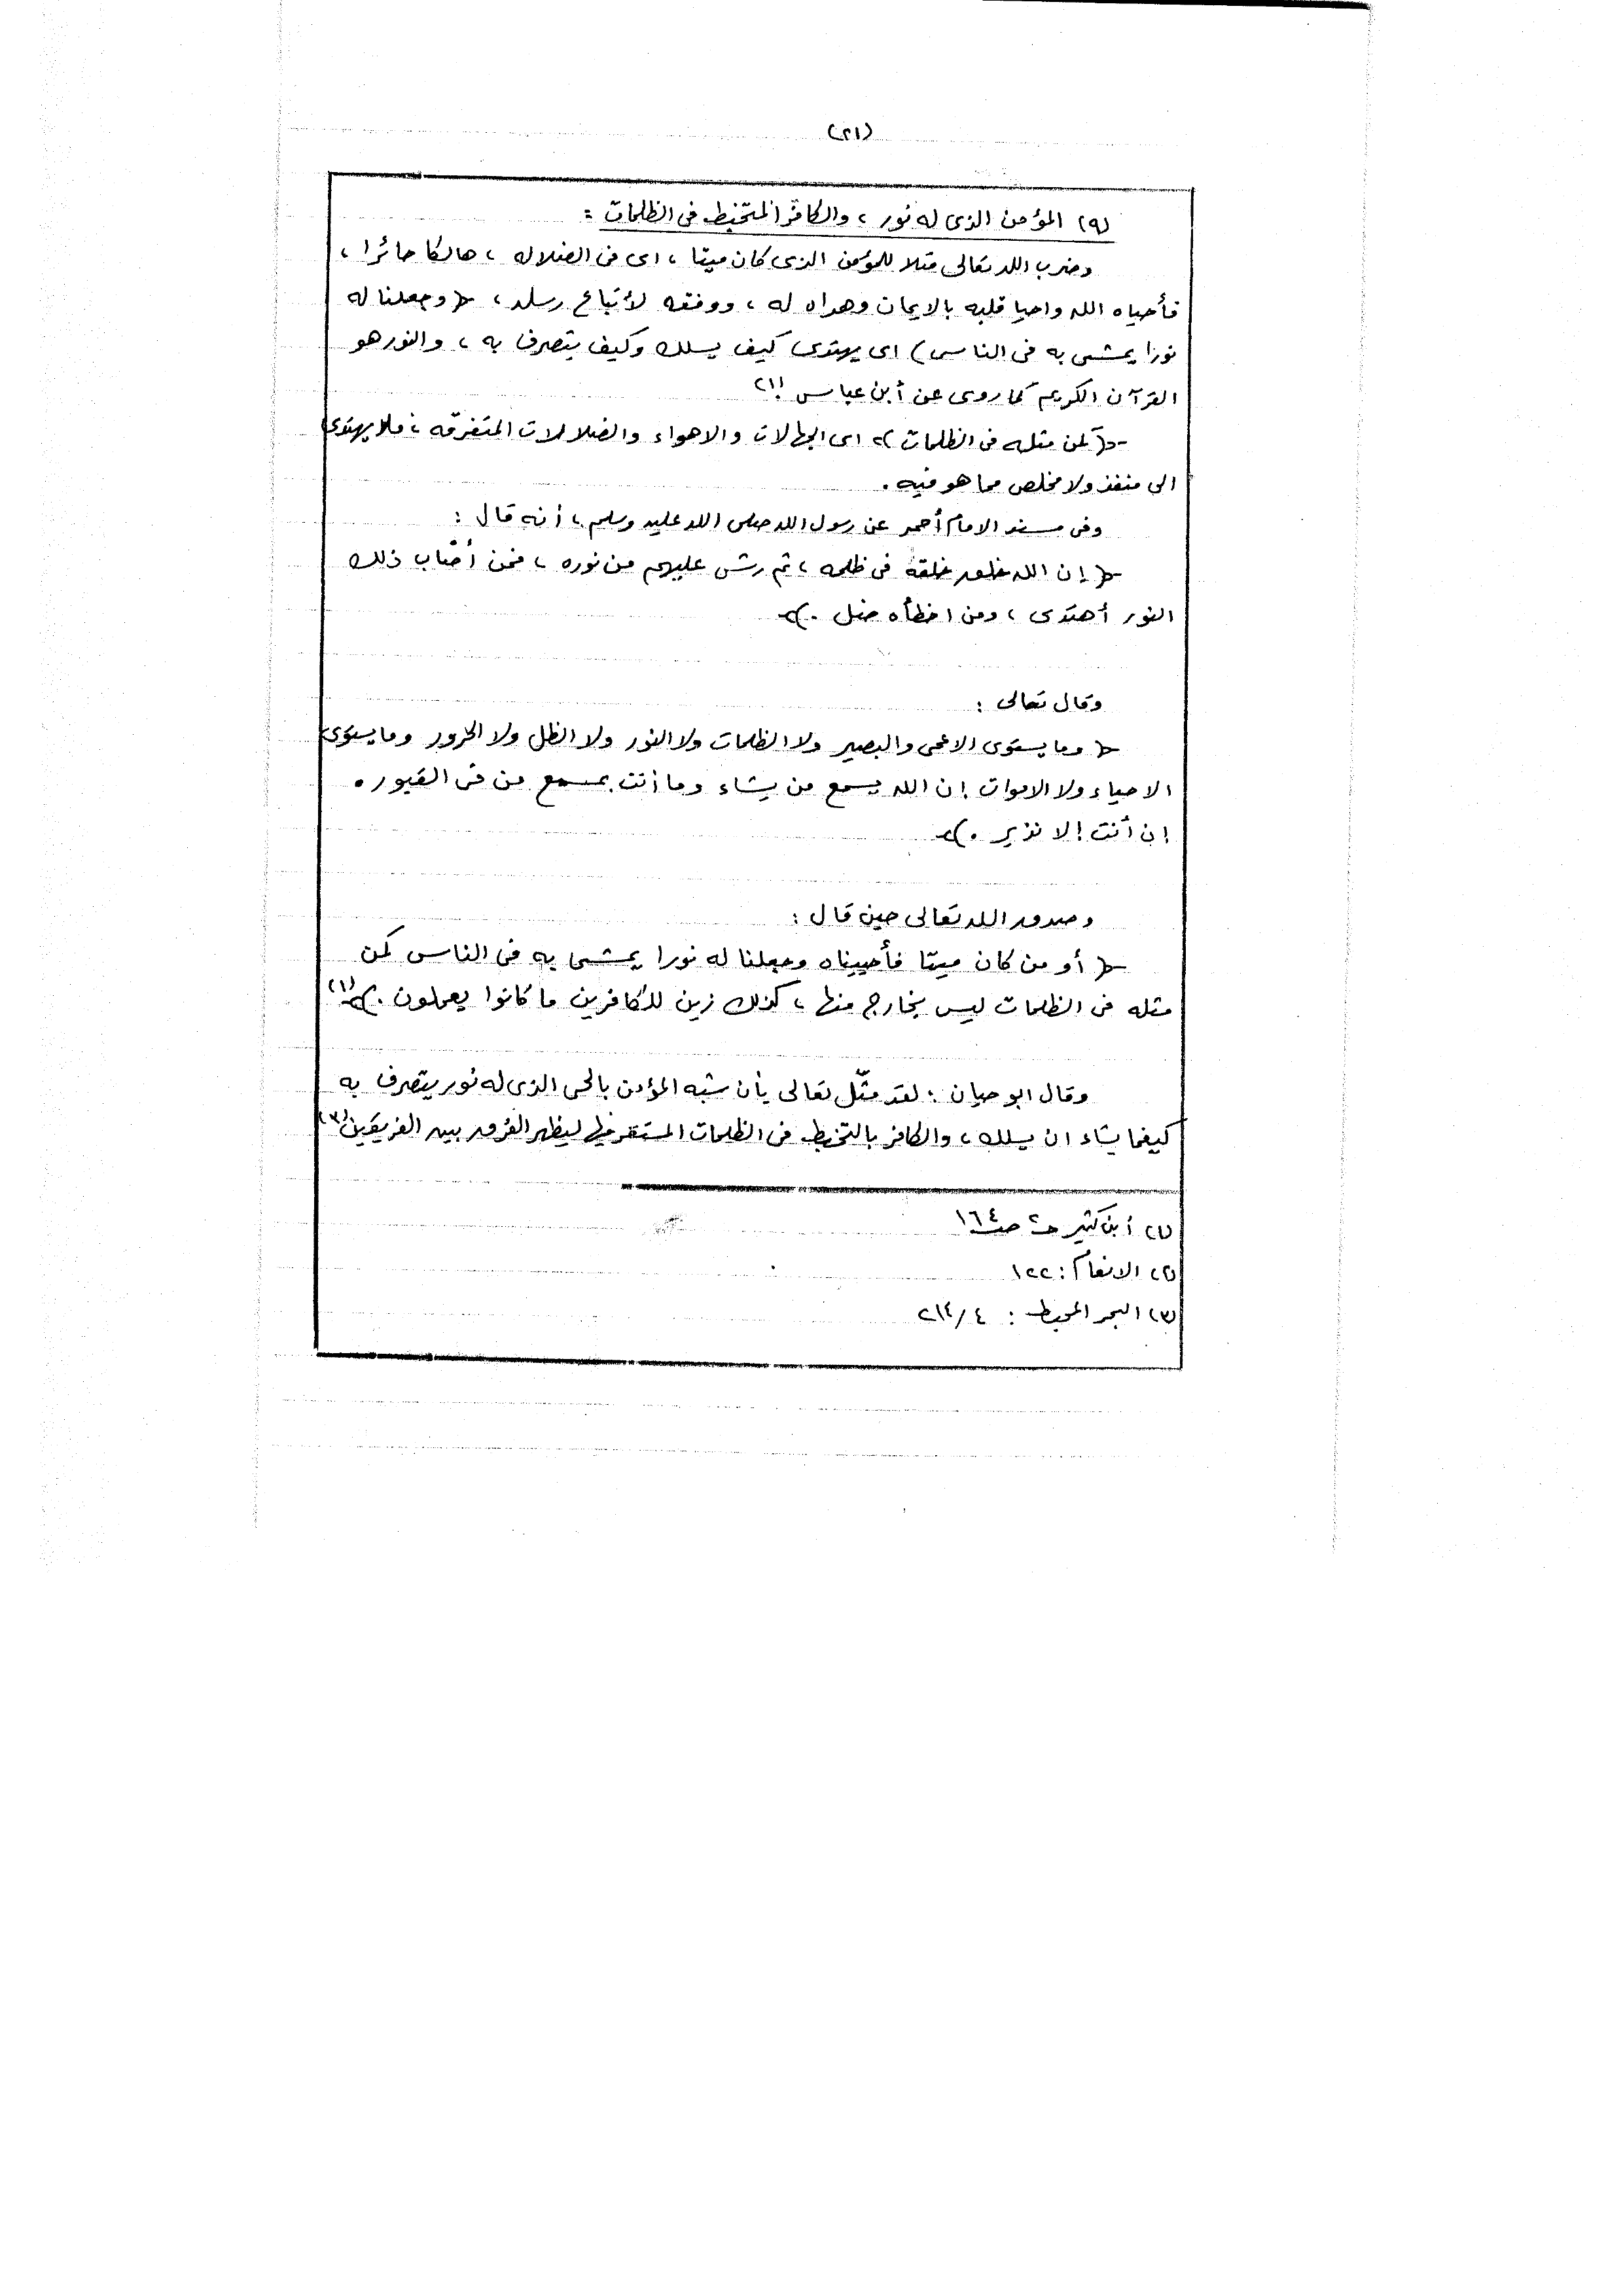 (٢١)
(٩) المؤمن الذى له نور ، والكافر المتخبط فى الظلمات :
وضرب الله تعالى مثلا للمؤمن الذى كان ميتا ، اى فى الضلاله ، هالكا حائرا ،
فأحياه الله واحيا قلبه بالايمان وهداه له ، ووفقه لأتباع رسله ، ﴿ وجعلنا له
نورا يمشى به فى الناس ) اى يهتدى كيف يسلك وكيف يتصرف به ، والنور هو
القرآن الكريم كما روى عن أبن عباس (١)
﴿ كمن مثله فى الظلمات ﴾ اى الجهالات والاهواء والضلالات المتفرقه ، فلا يهتدى
الى منفذ ولا مخلص مما هو فيه .
وفى مسند الامام أحمد عن رسول الله صلى الله عليه وسلم ، أنه قال :
﴿ إن الله خلق خلقه فى ظلمه ، ثم رش عليهم من نوره ، فمن أصاب ذلك
النور أهتدى ، ومن اخطأه ضل . ﴾
وقال تعالى :
﴿ وما يستوى الاعمى والبصير ولا الظلمات ولا النور ولا الظل ولا الحرور وما يستوى
الاحياء ولا الاموات إن الله يسمع من يشاء وما أنت بمسمع من فى القبور .
إن أنت إلا نذير . ﴾
وصدق الله تعالى حين قال :
﴿ أو من كان ميتا فأحييناه وجعلنا له نورا يمشى به فى الناس كمن
مثله فى الظلمات ليس بخارج منها ، كذلك زين للكافرين ما كانوا يعملون . ﴾ (١)
وقال ابو حيان : لقد مثّل تعالى بأن شبه المؤمن بالحى الذى له نور يتصرف به
كيفما يشاء ان يسلك ، والكافر بالتخبط فى الظلمات المستقر فيها ليظهر الفرق بين الفريقين (٣)
(١) أبن كثير ح٢ ص١٦٤
(٢) الانعام : ١٢٢
(٣) البحر المحيط : ٤ / ٢١٤